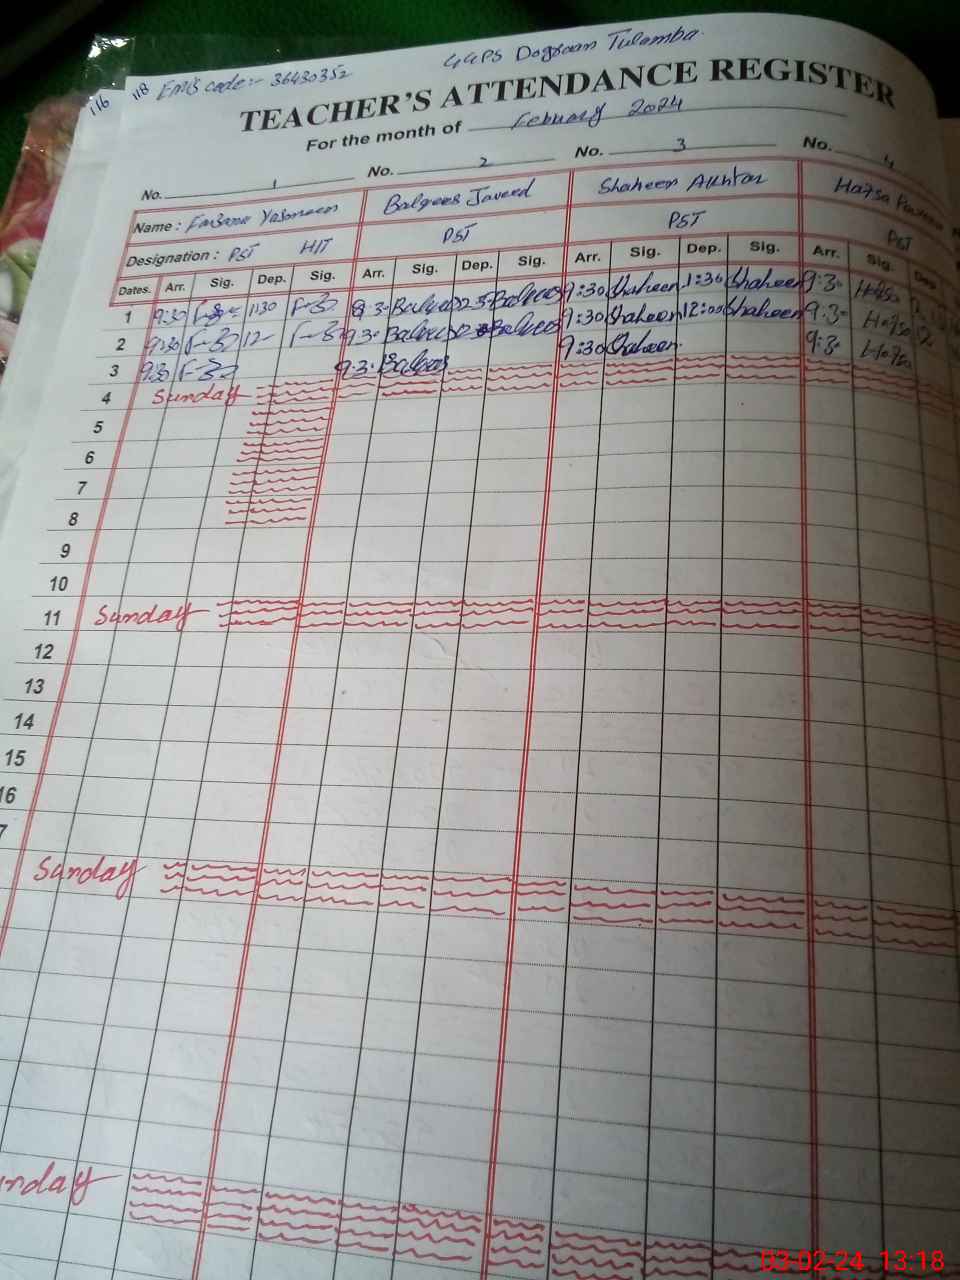 116 118 EMIS code:- 36430352 GGPS Dograan Tulamba.
TEACHER'S ATTENDANCE REGISTER
For the month of February 2024
No. 1 No. 2 No. 3 No. 4
Name : Farzana Yasmeen Balqees Javeed Shaheen Akhtar Hafsa
Designation : PST HIT PST PST PST
Dates. Arr. Sig. Dep. Sig. Arr. Sig. Dep. Sig. Arr. Sig. Dep. Sig. Arr. Sig. Dep.
1 9:30 1:30 9:30 Balqees Balqees 9:30 Shaheen 1:30 Shaheen 9:30 Hafsa
2 9:30 12- 9:30 Balqees Balqees 9:30 Shaheen 12:00 Shaheen 9:30 Hafsa 12
3 9:30 9:30 Balqees 9:30 Shaheen 9:30 Hafsa
4 Sunday
5
6
7
8
9
10
11 Sunday
12
13
14
15
16
7
Sunday
nday
03-02-24 13:18